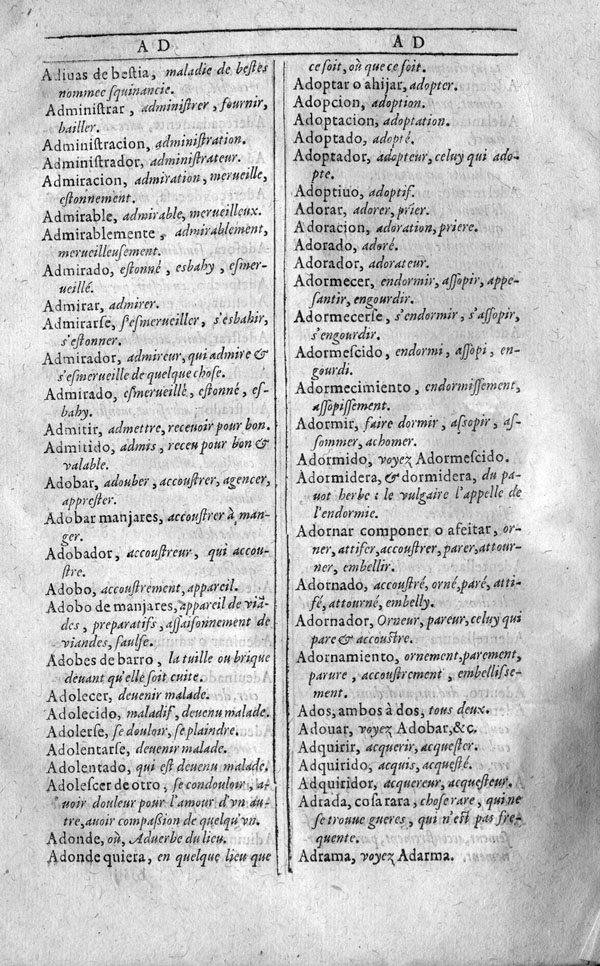 A D
Adiuas de bestia, maladie de bestes
nommee squinancie.
Administrar, administrer, fournir,
bailler.
Administracion, administration.
Administrador, administrateur.
Admiracion, admiration, merueille,
estonnement.
Admirable, admirable, merueilleux.
Admirablemente, admirablement,
merueilleusement.
Admirado, estonné, esbahy, esmer-
ueillé.
Admirar, admirer.
Admirarse, s'esmerueiller, s'esbahir,
s'estonner.
Admirador, admireur, qui admire &
s'esmerueille de quelque chose.
Admirado, esmerueillé, estonné, es-
bahy.
Admitir, admettre, receuoir pour bon.
Admitido, admis, receu pour bon &
valable.
Adobar, adouber, accoustrer, agencer,
apprester.
Adobar manjares, accoustrer à man-
ger.
Adobador, accoustreur, qui accou-
stre.
Adobo, accoustrement, appareil.
Adobo de manjares, appareil de viã-
des, preparatifs, assaisonnement de
viandes, saulse.
Adobes de barro, la tuille ou brique
deuant qu'elle soit cuite.
Adolecer, deuenir malade.
Adolecido, maladif, deuenu malade.
Adolerse, se douloir, se plaindre.
Adolentarse, deuenir malade.
Adolentado, qui est deuenu malade.
Adolescer de otro, se condouloir, a-
uoir douleur pour l'amour d'vn au-
tre, auoir compassion de quelqu'vn.
Adonde, où, Aduerbe du lieu.
Adonde quiera, en quelque lieu que
A D
ce soit, où que ce soit.
Adoptar o ahijar, adopter.
Adopcion, adoption.
Adoptacion, adoptation.
Adoptado, adopté.
Adoptador, adopteur, celuy qui ado-
pte.
Adoptiuo, adoptif.
Adorar, adorer, prier.
Adoracion, adoration, priere.
Adorado, adoré.
Adorador, adorateur.
Adormecer, endormir, assopir, appe-
santir, engourdir.
Adormecerse, s'endormir, s'assopir,
s'engourdir.
Adormescido, endormi, assopi, en-
gourdi.
Adormecimiento, endormissement,
assopissement.
Adormir, faire dormir, assopir, as-
sommer, achomer.
Adormido, voyez Adormescido.
Adormidera, & dormidera, du pa-
uot herbe: le vulgaire l'appelle de
l'endormie.
Adornar componer o afeitar, or-
ner, attifer, accoustrer, parer, attour-
ner, embellir.
Adornado, accoustré, orné, paré, atti-
fé, attourné, embelly.
Adornador, Orneur, pareur, celuy qui
pare & accoustre.
Adornamiento, ornement, parement,
parure, accoustrement, embellisse-
ment.
Ados, ambos à dos, tous deux.
Adouar, voyez Adobar, &c.
Adquirir, acquerir, acquester.
Adquirido, acquis, acquesté.
Adquiridor, acquereur, acquesteur.
Adrada, cosa rara, chose rare, qui ne
se trouue gueres, qui n'est pas fre-
quente.
Adrama, voyez Adarma.